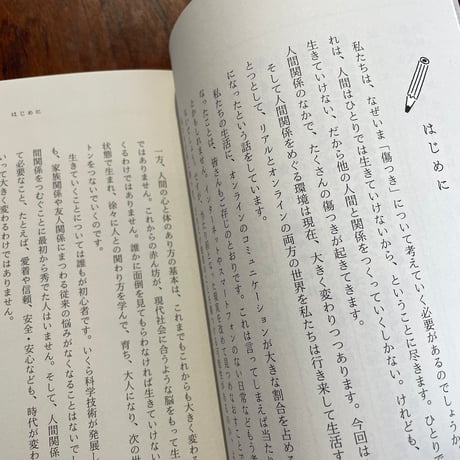 はじめに
私たちは、なぜいま「傷つき」について考えていく必要があるのでしょうか
れは、人間はひとりでは生きていけないから、ということに尽きます。ひとりで
生きていけない、だから他の人間と関係をつくっていくしかない。けれども、
人間関係のなかで、たくさんの傷つきが起きてきます。
そして人間関係をめぐる環境は現在、大きく変わりつつあります。今回は
とつとして、リアルとオンラインの両方の世界を私たちは行き来して生活す
になったという話をしています。
私たちの生活に、オンラインのコミュニケーションが大きな割合を占め
なったことは、皆さんもご存じのとおりです。これは言ってしまえば当た
ネットやスマートフォンのない日常などもう
現実を改めて見つめなおすこと
はじめに
一方、人間の心と体のあり方の基本は、これまでもこれからも大きく変わる
ではありません。これからの赤ん坊が、現代社会に合うような脳をもって生
くるわけではありません。誰かに面倒を見てもらわなければ生きていけない
状態で生まれ、徐々に人との関わり方を学んで、育ち、大人になり、次の世
トンをつないでいくのです。
生きていくことについては誰もが初心者です。いくら科学技術が発展し
も、家族関係や友人関係にまつわる従来の悩みがなくなることはないでし
間関係をつむぐことに最初から秀でた人はいません。そして、人間関係
て必要なこと、たとえば、愛着や信頼、安全・安心なども、時代が変わ
って大きく変わるわけではありません。